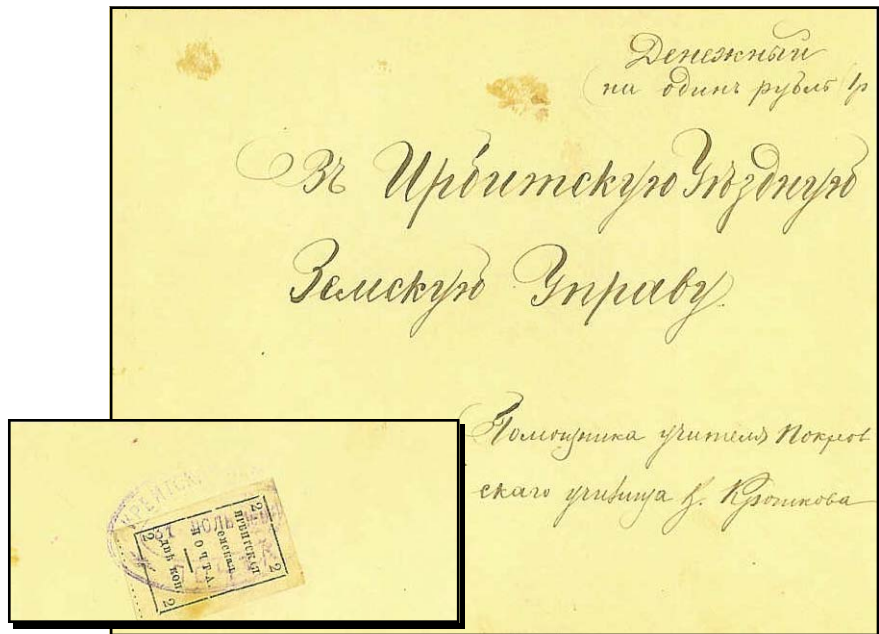 Денежный
на одинъ рубль 1р
Въ Ирбитскую Уѣздную
Земскую Управу.
Помощника учителя Покров
скаго училища Кроткова
ИРБИТСКАЯ
ЗЕМСКАЯ
ПОЧТА.
ДВѢ КОП.
2
2
2
2